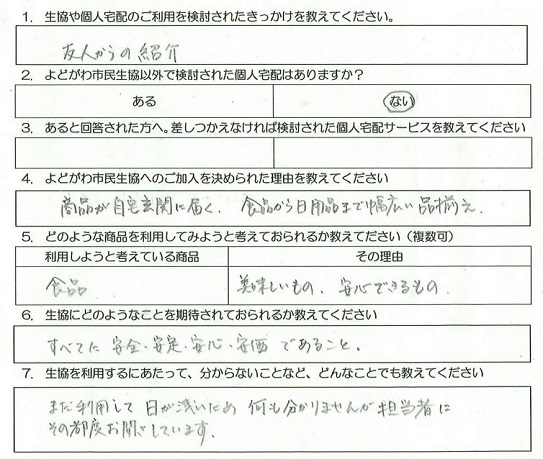 1. 生協や個人宅配のご利用を検討されたきっかけを教えてください。
友人からの紹介
2. よどがわ市民生協以外で検討された個人宅配はありますか?
ある ない
3. あると回答された方へ。差しつかえなければ検討された個人宅配サービスを教えてください
4. よどがわ市民生協へのご加入を決められた理由を教えてください
商品が自宅玄関に届く、食品から日用品まで幅広い品揃え、
5. どのような商品を利用してみようと考えておられるか教えてださい(複数可)
利用しようと考えている商品 その理由
食品 美味しいもの、安心できるもの
6. 生協にどのようなことを期待されておられるか教えてください
すべてに 安全・安定・安心・安価 であること。
7. 生協を利用するにあたって、分からないことなど、どんなことでも教えてください
まだ利用して 日が浅いため 何も分かりませんが 担当者に
その都度お聞きしています。